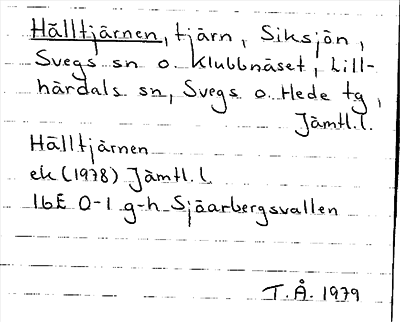 Hålltjärnen, tjärn, Siksjön,
Svegs sn o. Klubbnäset, Lill-
härdals sn, Svegs o. Hede tg,
Jämtl.l.
Hålltjärnen
ek (1978) Jämtl. l
16E 0-1 g-h Sjöarbergsvallen
T.Å. 1979